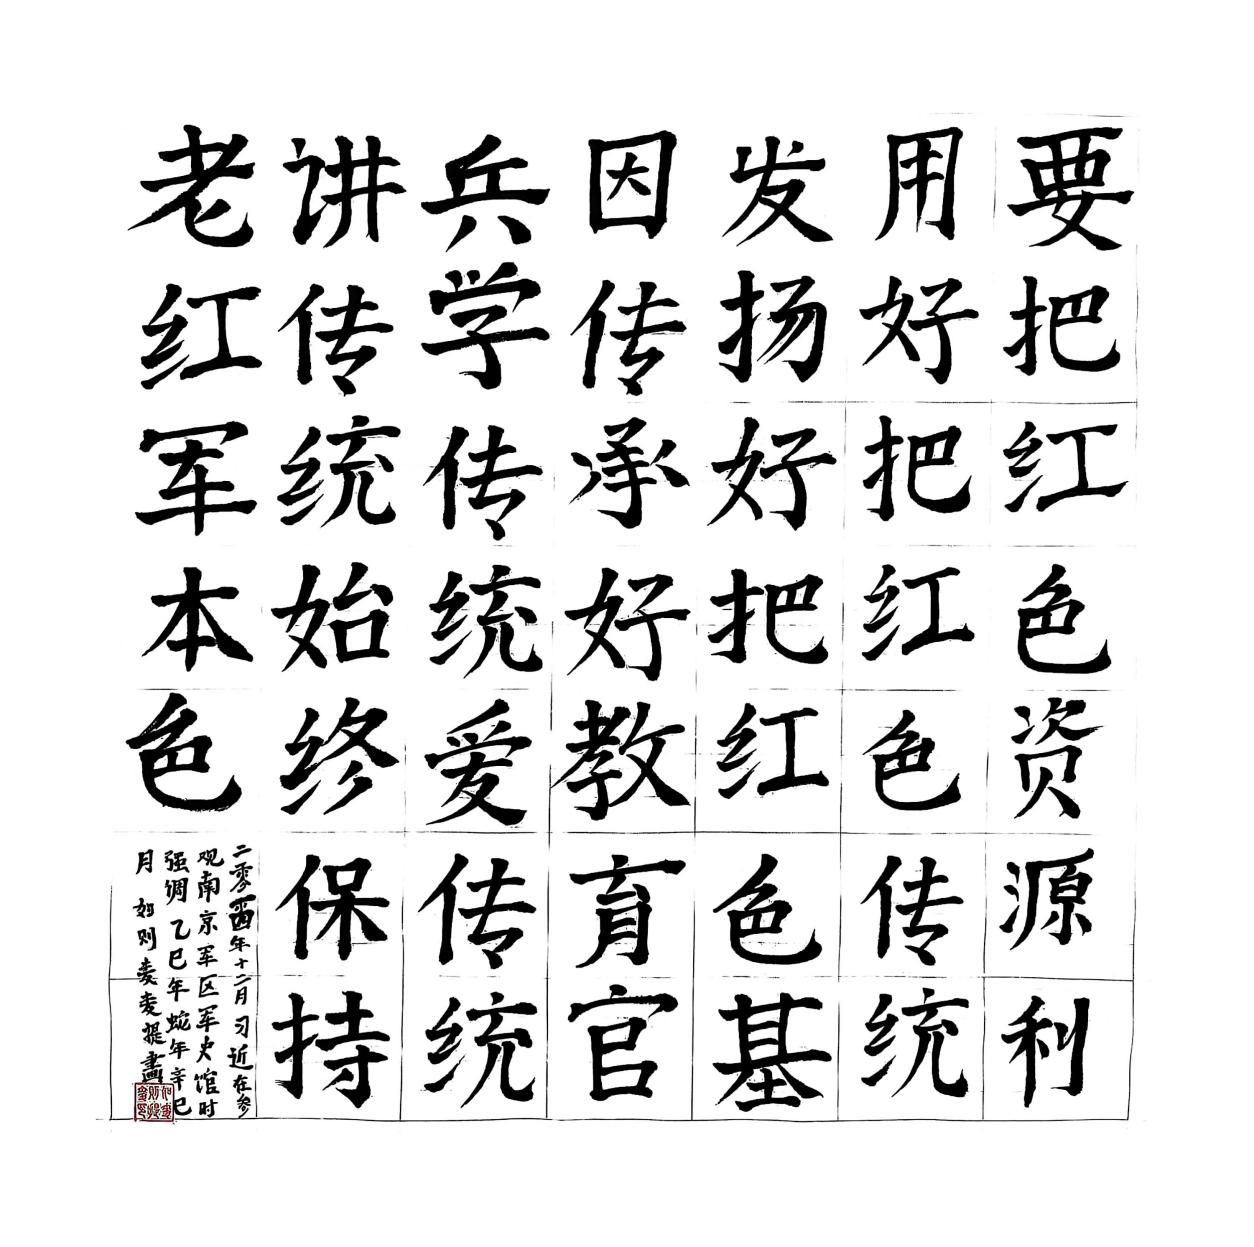 要把红色资源利
用好把红色传统
发扬好把红色基
因传承好教育官
兵学传统爱传统
讲传统始终保持
老红军本色
二零一四年十二月习近在参
观南京军区军史馆时
强调乙巳年蛇年辛巳
月如则麦麦提書